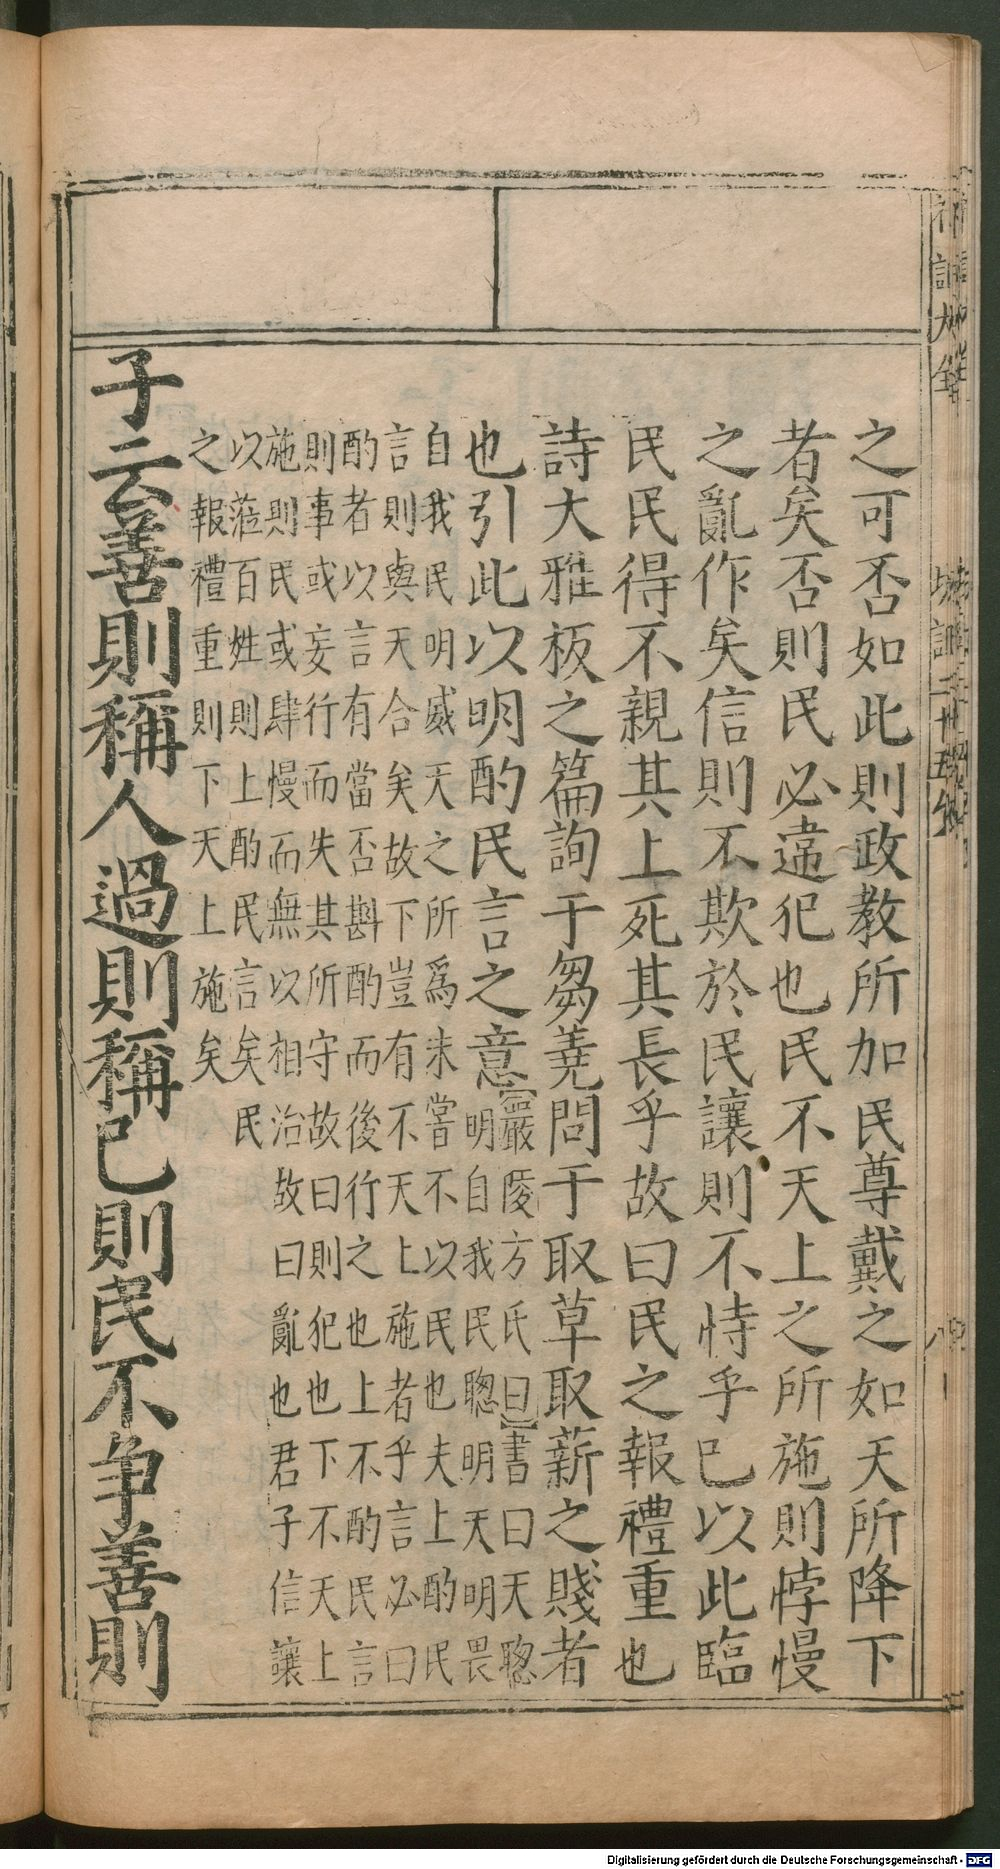 之可否如此則政教所加民尊戴之如天所降下
者矣否則民必違犯也民不天上之所施則悖慢
之亂作矣信則不欺於民讓則不恃乎已以此臨
民民得不親其上死其長乎故曰民之報禮重也
詩大雅板之篇詢于芻蕘問于取草取薪之賤者
也引此以明酌民言之意
嚴陵方氏曰書曰天聰
明自我民聰明天明畏
自我民明威天之所為未嘗不以民也夫上酌民
言則與天合矣故下豈有不天上施者乎言必曰
酌者以言有當否斟酌而後行之也上不酌民言
則事或妄行而失其所守故曰則犯也下不天上
施則民或肆慢而無以相治故曰亂也君子信讓
以蒞百姓則上酌民言矣民
之報禮重則下天上施矣
子云善則稱人過則稱已則民不争善則
Digitalisierung gefördert durch die Deutsche Forschungsgemeinschaft - DFG